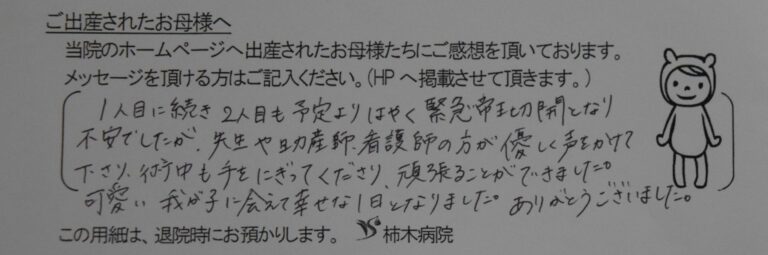 ご出産されたお母様へ
当院のホームページへ出産されたお母様たちにご感想を頂いております。
メッセージを頂ける方はご記入ください。(HPへ掲載させて頂きます。)
1人目に続き2人目も予定よりはやく緊急帝王切開となり
不安でしたが、先生や助産師、看護師の方が優しく声をかけて
下さり、術中も手をにぎってくださり、頑張ることができました。
可愛い我が子に会えて幸せな1日となりました。ありがとうございました。
この用紙は、退院時にお預かりします。 柿木病院